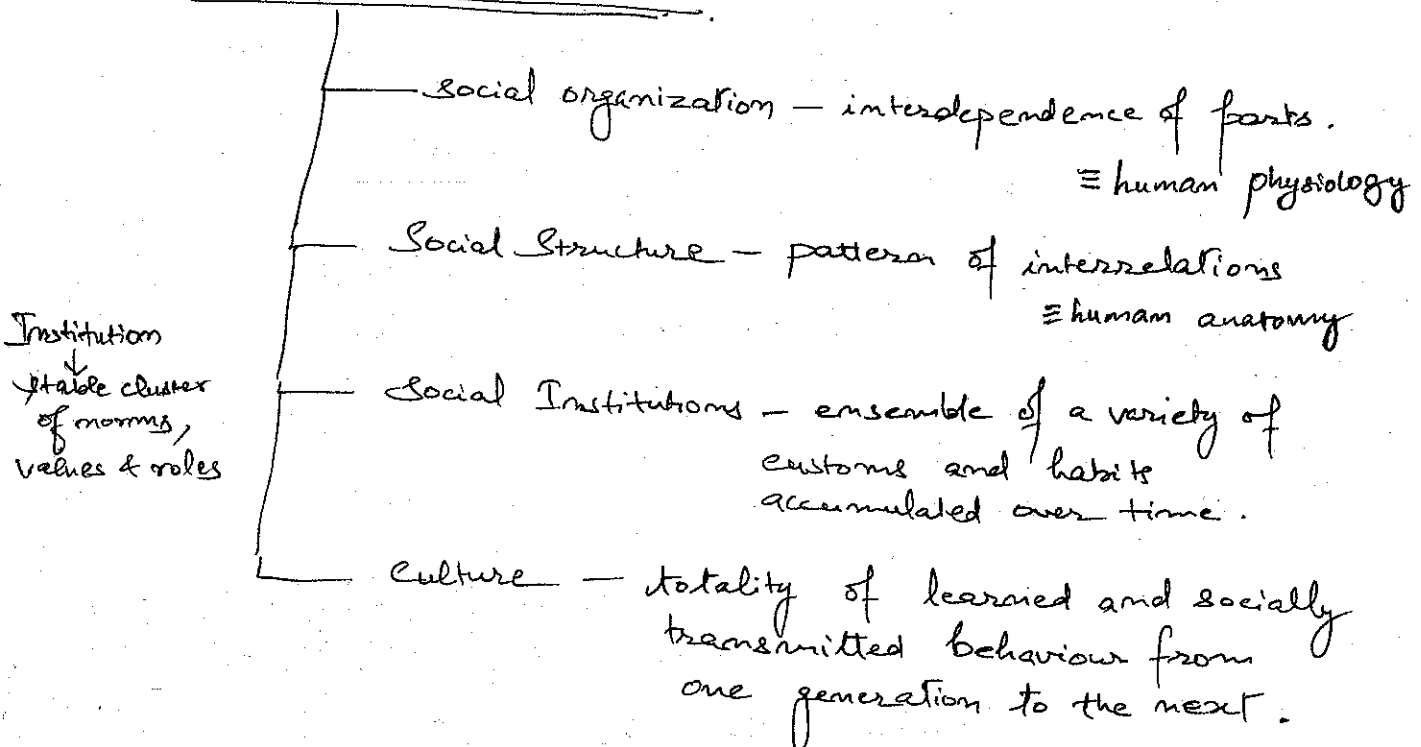 Social organization — interdependence of parts.
≡ human physiology
Social Structure — pattern of interrelations
≡ human anatomy
Institution
↓
stable cluster
of norms,
values & roles
Social Institutions — ensemble of a variety of
customs and habits
accumulated over time.
Culture — totality of learned and socially
transmitted behaviour from
one generation to the next.